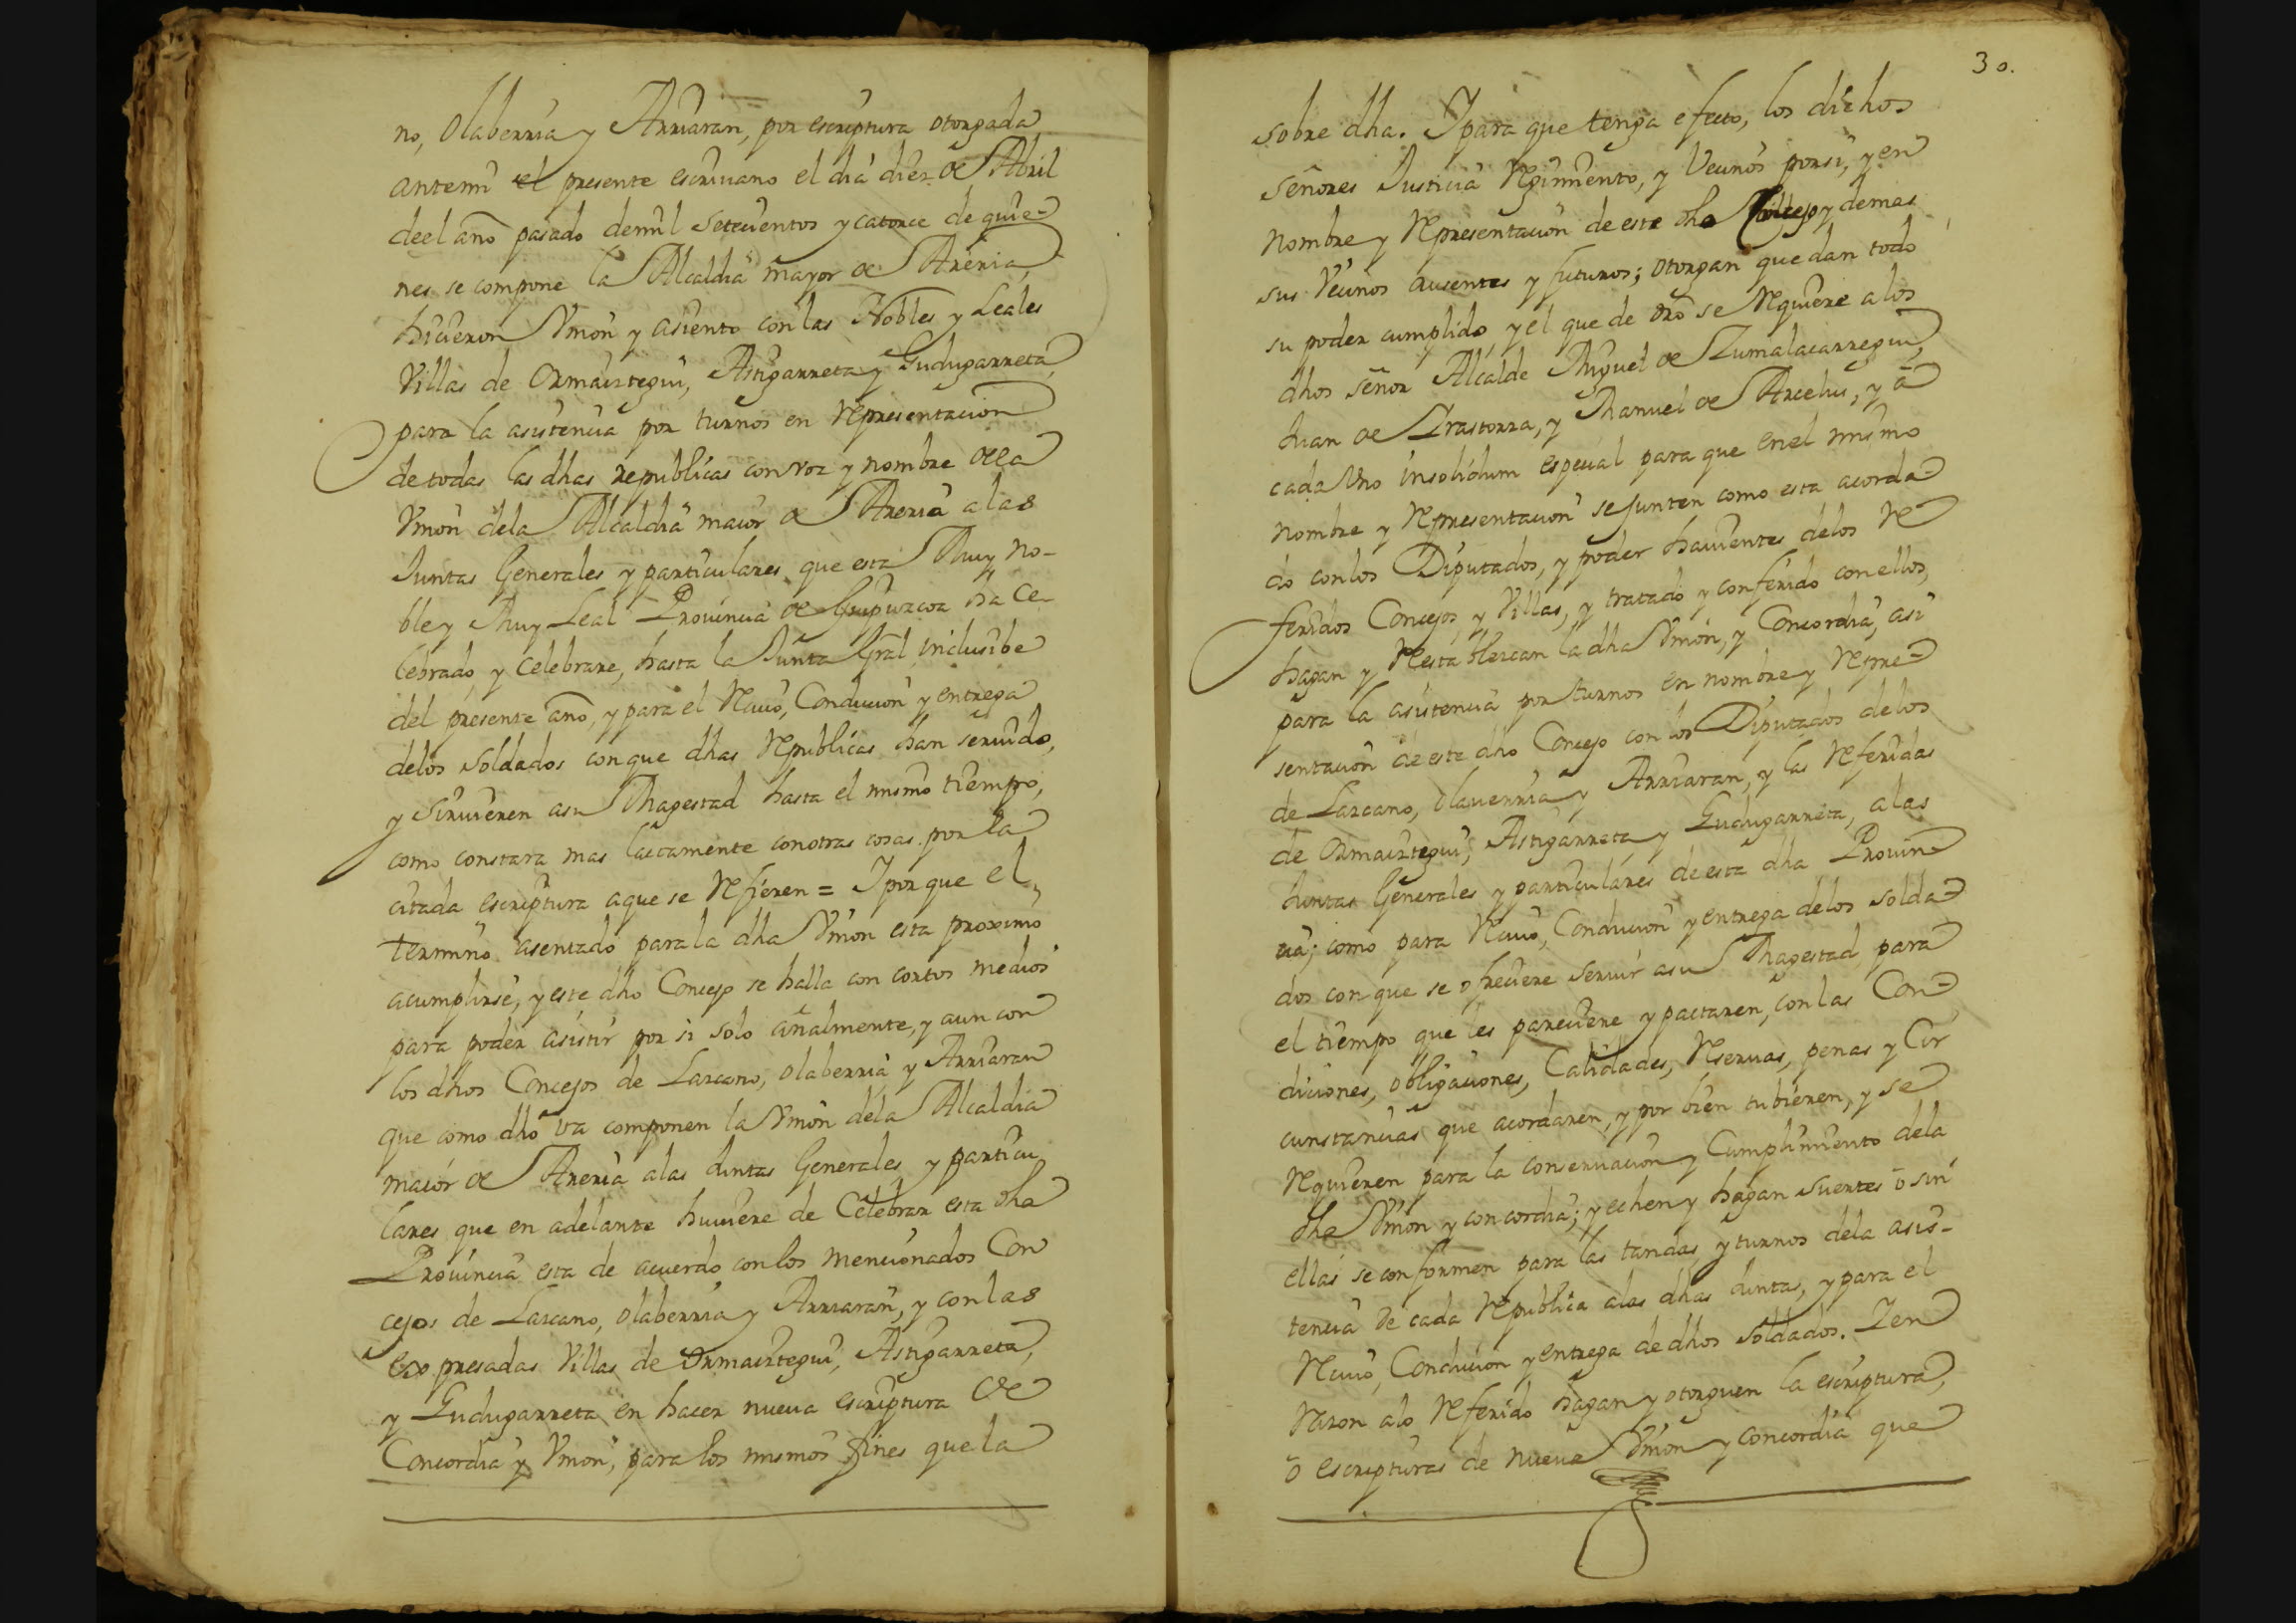 no, Olaberria y Arriaran, por escriptura otorgada
antemi el presente escrivano el dia diez de Abril
deel año pasado demil setecientos y catorce de quie-
nes se compone la Alcaldia mayor de Areria,
hicieron Vnion y asiento con las Nobles y Leales
Villas de Ormaiztegui, Astigarreta y Gudugarreta,
para la asistencia por turnos en representacion
de todas las dhas republicas con voz y nombre de la
Vnion dela Alcaldia maior de Areria a las
Juntas Generales y particulares que esta Muy No-
ble y Muy Leal Provincia de Guipuzcoa ha Ce-
lebrado y celebrare, hasta la Junta Gral inclusibe
del presente año, y para el Recivo, Conducion y entrega
delos soldados con que dhas Republicas han servido,
y sirvieren asu Magestad hasta el mismo tiempo,
como constara mas laccamente con otras cosas por la
citada escriptura aque se Refieren = Y por que el
termino asentado para la dha Vnion esta proximo
acumplirse, y este dho Concejo se halla con cortos medios
para poder asistir por si solo añalmente, y aun con
los dhos Concejos de Lazcano, Olaberria y Arriaran
que como dho va componen la Vnion dela Alcaldia
maior de Areria alas Juntas Generales y particu
lares que en adelante huviere de Celebrar esta dha
Provincia esta de acuerdo con los mencionados Con
cejos de Lazcano, Olaberria y Arriaran, y con las
expresadas Villas de Ormaiztegui, Astigarreta,
y Gudugarreta en hacer nueva escriptura de
Concordia y Vnion, para los mismos fines que la
30.
sobre dha. Y para que tenga efecto, los dichos
señores Justicia Regimiento, y Vecinos por si, y en
nombre y Representacion de este dho Concejo y demas
sus Vecinos Ausentes y futuros; otorgan que dan todo
su poder cumplido, y el que de dro se Requiere a los
dhos señor Alcalde Miguel de Zumalacarregui,
Juan de Irastorza, y Manuel de Arcelus, y â
cada Vno insolidum especial para que en el mismo
nombre y Representacion se junten como esta acorda-
do con los Diputados, y poder havientes delos Re
feridos Concejos y Villas, y tratado y conferido con ellos,
hagan y Restablezcan la dha Vnion, y Concordia, asi
para la asistencia por turnos en nombre y Repre-
sentacion de este dho Concejo con los Diputados delos
de Lazcano, Olaverria y Arriaran, y las Referidas
de Ormaiztegui, Astigarreta y Gudugarreta, alas
Juntas Generales y particulares de esta dha Provin-
cia; como para Recivo, Conducion y entrega delos solda-
dos con que se ofreciere servir asu Magestad para
el tiempo que les pareciere y pactaren, con las Con-
diciones, obligaciones, Calidades, Reservas, penas y Cir
cunstancias que acordaren, y por bien tubieren, y se
Requieren para la conservacion y Cumplimiento dela
dha Vnion y concordia; y echen y hagan suertes ô sin
ellas se conformen para las tandas y turnos dela asis-
tencia de cada Republica alas dhas Juntas, y para el
Recivo, Conducion y entrega de dhos soldados. Y en
Razon alo Referido hagan y otorguen la escriptura,
ô escripturas de nueva Vnion y concordia que